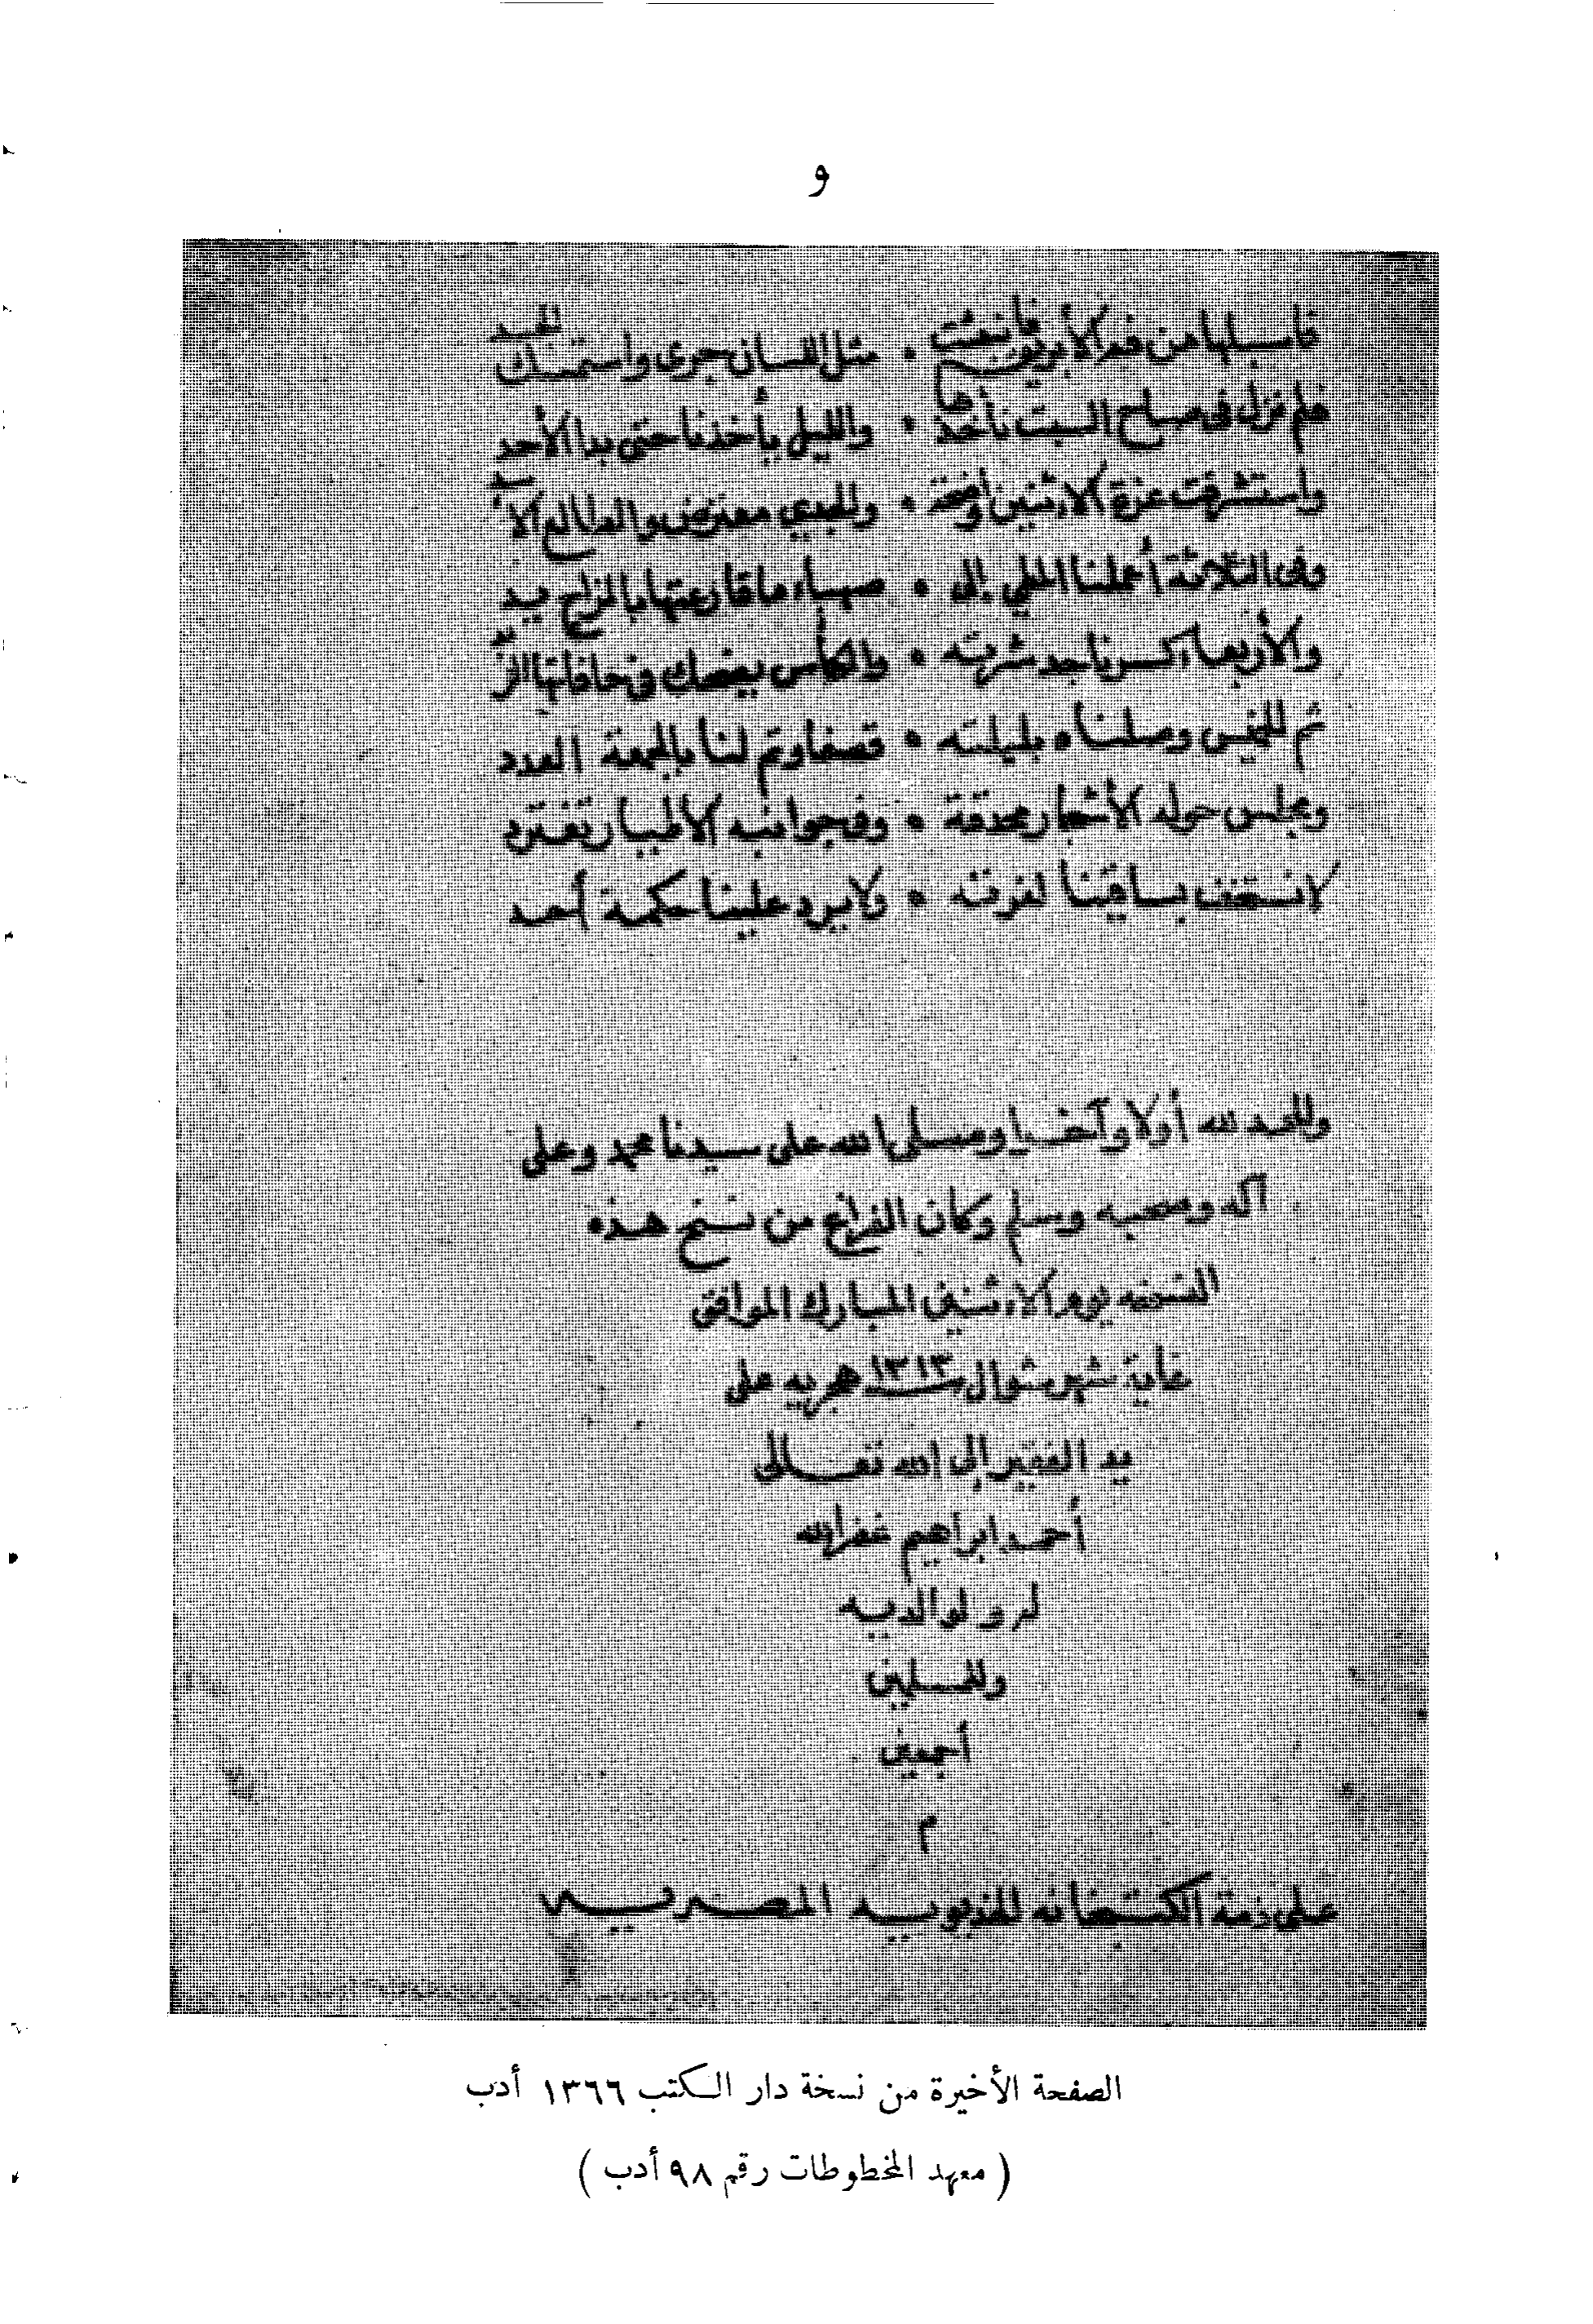 و
فاسبلها من فم الأبريق فانبعثت • مثل اللسان جرى واستمسك الجسد
فلم نزل في صباح السبت نأخذها • والليل يأخذنا حتى بدا الأحد
واستشرقت غرة الاثنين واضحة • والجدي معترض والطالع الأسد
وفي الثلاثة أعملنا المطي إلى • صهباء ما قارعتها بالمزاج يد
والأربعاء كسرنا حد شربته • والكأس يضحك في حافاتها الزبد
ثم الخميس وصلناه بليلته • قصفا وتم لنا بالجمعة العدد
ومجلس حوله الأشجار محدقة • وفي جوانبه الأطيار تغترد
لا نستخف بساقينا لغرته • ولا يرد علينا حكمه أحد
والحمد لله أولا وآخرا وصلى الله على سيدنا محمد وعلى
آله وصحبه وسلم وكان الفراغ من نسخ هذه
النسخه يوم الاثنين المبارك الموافق
غاية شهر شوال سنة ١٣١٣ هجريه على
يد الفقير إلى الله تعالى
أحمد ابراهيم غفر الله
له ولوالديه
وللمسلمين
أجمعين
م
على ذمة الكتبخانه الخديويه المصريه
الصفحة الأخيرة من نسخة دار الكتب ١٣٦٦ أدب
( معهد المخطوطات رقم ٩٨ أدب )